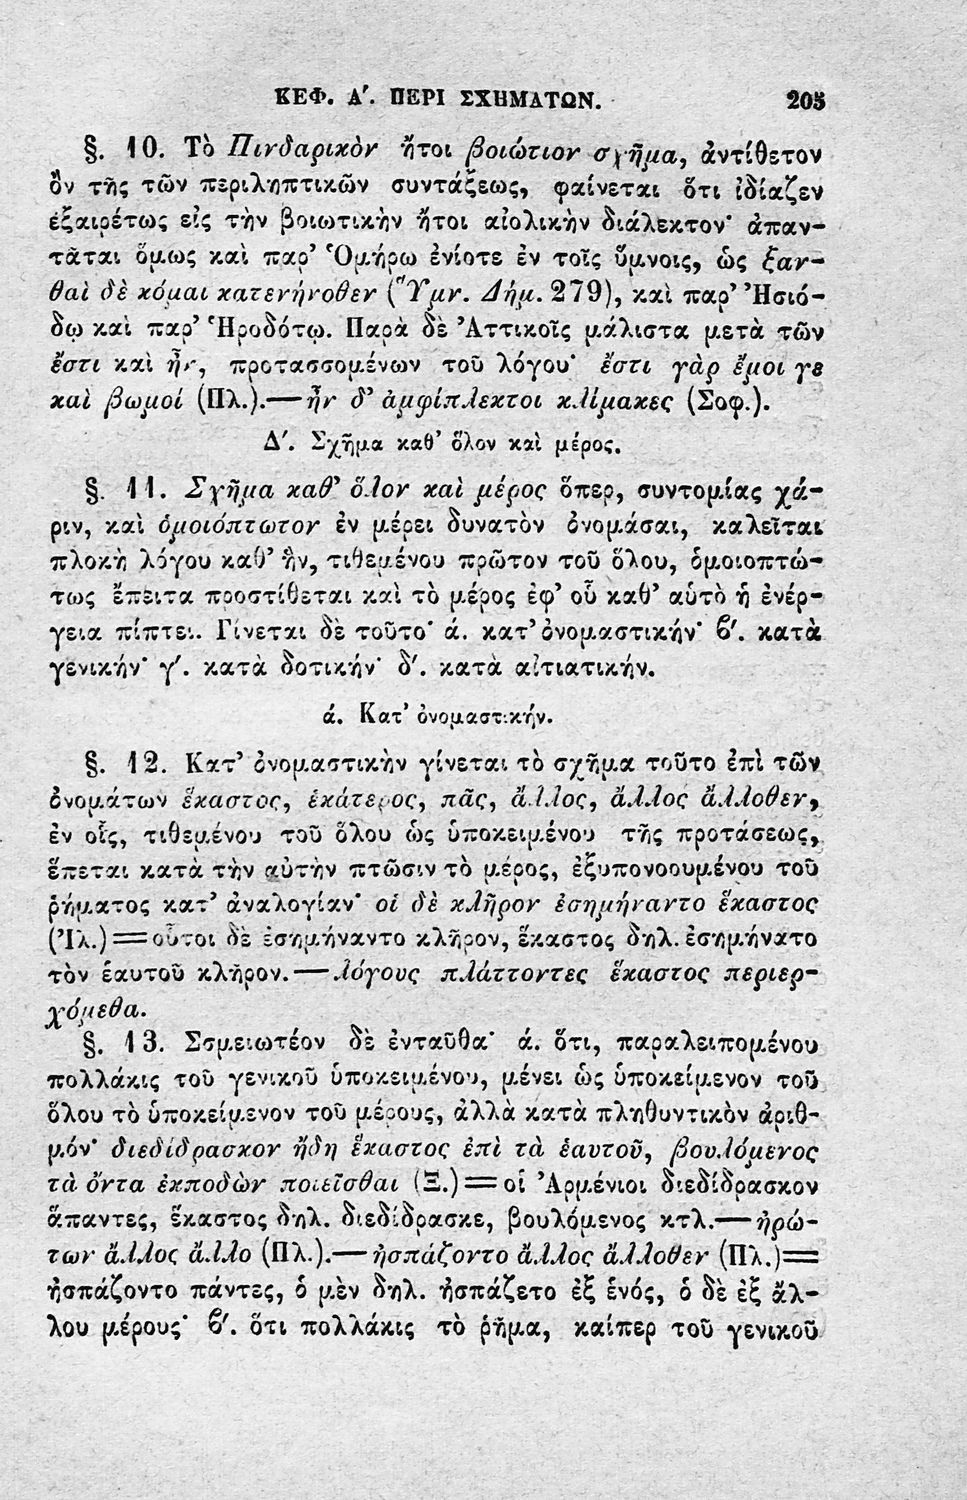 ΚΕΦ. Α΄. ΠΕΡΙ ΣΧΗΜΑΤΩΝ. 205
§. 10. Τὸ Πινδαρικὸν ἤτοι βοιώτιον σχῆμα, ἀντίθετον
ὂν τῆς τῶν περιληπτικῶν συντάξεως, φαίνεται ὅτι ἰδίαζεν
ἐξαιρέτως εἰς τὴν βοιωτικὴν ἤτοι αἰολικὴν διάλεκτον· ἀπαν-
τᾶται ὅμως καὶ παρ’ Ὁμήρῳ ἐνίοτε ἐν τοῖς ὕμνοις, ὡς ξαν-
θαὶ δὲ κόμαι κατενήνοθεν (Ὕμν. Δήμ. 279), καὶ παρ’ Ἡσιό-
δῳ καὶ παρ’ Ἡροδότῳ. Παρὰ δὲ Ἀττικοῖς μάλιστα μετὰ τῶν
ἔστι καὶ ἦν, προτασσομένων τοῦ λόγου· ἔστι γὰρ ἔμοι γε
καὶ βωμοί (Πλ.).—ἦν δ’ ἀμφίπλεκτοι κλίμακες (Σοφ.).
Δ΄. Σχῆμα καθ’ ὅλον καὶ μέρος.
§. 11. Σχῆμα καθ’ ὅλον καὶ μέρος ὅπερ, συντομίας χά-
ριν, καὶ ὁμοιόπτωτον ἐν μέρει δυνατὸν ὀνομάσαι, καλεῖται
πλοκὴ λόγου καθ’ ἣν, τιθεμένου πρῶτον τοῦ ὅλου, ὁμοιοπτώ-
τως ἔπειτα προστίθεται καὶ τὸ μέρος ἐφ’ οὗ καθ’ αὑτὸ ἡ ἐνέρ-
γεια πίπτει. Γίνεται δὲ τοῦτο· ά. κατ’ ὀνομαστικήν· ϐ΄. κατὰ
γενικήν· γ΄. κατὰ δοτικήν· δ΄. κατὰ αἰτιατικήν.
ά. Κατ’ ὀνομαστικήν.
§. 12. Κατ’ ὀνομαστικὴν γίνεται τὸ σχῆμα τοῦτο ἐπὶ τῶν
ὀνομάτων ἕκαστος, ἑκάτερος, πᾶς, ἄλλος, ἄλλος ἄλλοθεν,
ἐν οἷς, τιθεμένου τοῦ ὅλου ὡς ὑποκειμένου τῆς προτάσεως,
ἕπεται κατὰ τὴν αὐτὴν πτῶσιν τὸ μέρος, ἐξυπονοουμένου τοῦ
ῥήματος κατ’ ἀναλογίαν· οἱ δὲ κλῆρον ἐσημήναντο ἕκαστος
(Ἰλ.)=οὗτοι δὲ ἐσημήναντο κλῆρον, ἕκαστος δηλ. ἐσημήνατο
τὸν ἑαυτοῦ κλῆρον.—λόγους πλάττοντες ἕκαστος περιερ-
χόμεθα.
§. 13. Σσμειωτέον δὲ ἐνταῦθα· ά. ὅτι, παραλειπομένου
πολλάκις τοῦ γενικοῦ ὑποκειμένου, μένει ὡς ὑποκείμενον τοῦ
ὅλου τὸ ὑποκείμενον τοῦ μέρους, ἀλλὰ κατὰ πληθυντικὸν ἀριθ-
μόν· διεδίδρασκον ἤδη ἕκαστος ἐπὶ τὰ ἑαυτοῦ, βουλόμενος
τὰ ὄντα ἐκποδὼν ποιεῖσθαι (Ξ.)=οἱ Ἀρμένιοι διεδίδρασκον
ἅπαντες, ἕκαστος δηλ. διεδίδρασκε, βουλόμενος κτλ.—ἠρώ-
των ἄλλος ἄλλο (Πλ.).—ἠσπάζοντο ἄλλος ἄλλοθεν (Πλ.)=
ἠσπάζοντο πάντες, ὁ μὲν δηλ. ἠσπάζετο ἐξ ἑνός, ὁ δὲ ἐξ ἄλ-
λου μέρους· ϐ΄. ὅτι πολλάκις τὸ ῥῆμα, καίπερ τοῦ γενικοῦ